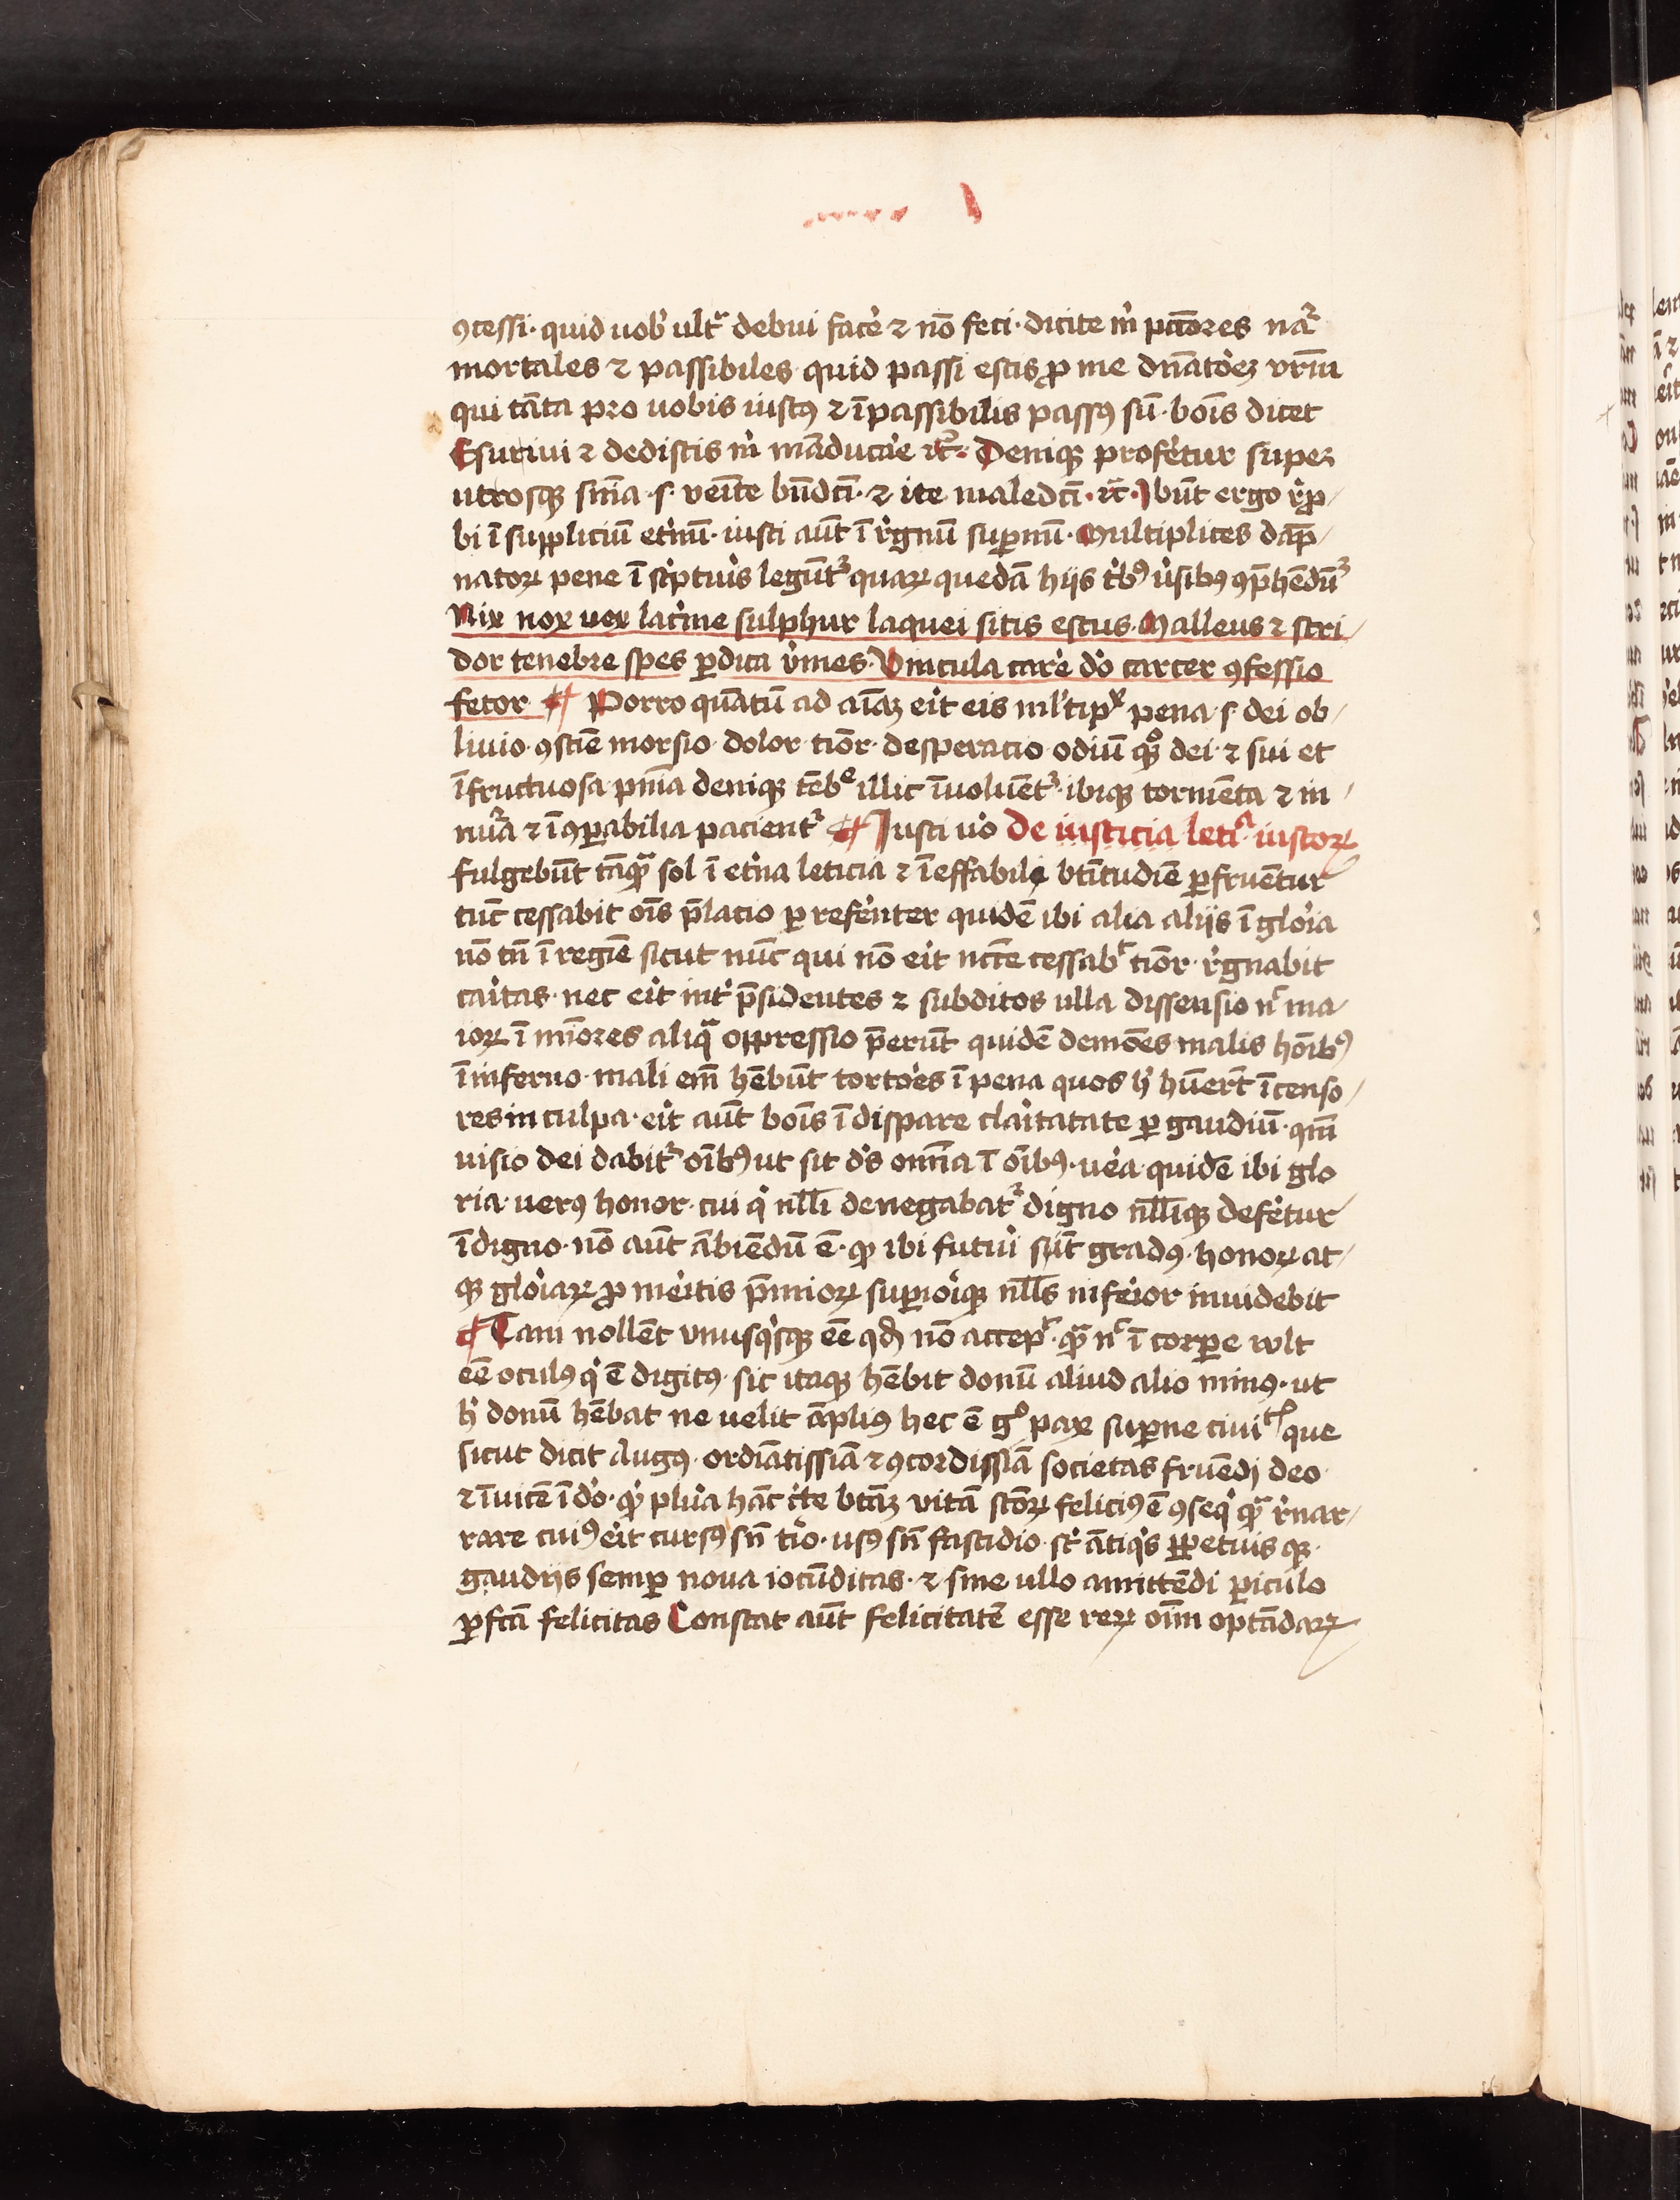 ꝯcessi · quid uob̓ ult᷑ debui face̓ ⁊ nō feci · dicite m̓ pc̄tores nar̄
mortales ⁊ passibiles quid passi estis ꝓ me dn̄ato̓eꝫ vr̄m
qui tāta pro uobis iustꝰ ⁊ īpassibilis passꝰ sū · bo̅is dicet
Esuriui ⁊ dedistis m̓ māduca̓e ⁊c̄ · Deniqꝫ profe̓tur super
utrosqꝫ sn̄ia · s · veīte bn̄dc̄i · ⁊ ite maledc̄i · ⁊c̄ · Ibūt ergo r̓ꝓ
bi ī suppliciū et̓nū · iusti aūt ī r̓gnū suꝑnū · Multiplices dāp
natoꝝ pene ī sc̓ptu̓is legūt᷑ quaꝝ quedā hijs t̓bꝰ u̓sibꝰ ꝯp̄hēdūt᷑
Nix nox uox lac̓me sulphur laquei sitis estus · Malleus ⁊ stri
dor tenebre spes ꝑdita v̓mes · Vincula care̓ do̓ carcer ꝯfessio
fetor ¶ Porro quātū ad aīaꝫ eit̓ eis ml̓tipˣ pena · s · dei ob
liuio · ꝯstiē morsio · dolor · tiōr · desperatio odiū qͦꝫ dei · ⁊ sui et
īfructuosa pn̄ia deniqꝫ tēbᵉ illic īuoluēt᷑ · ibiqꝫ tormēta ⁊ in
nu̓a ⁊ īꝯꝑabilia pacient᷑ ¶ Iusti uo̓ De iusticia letiᵃ iustoꝝ
fulgebūt tāqᷓ sol ī et̓na leticia ⁊ īeffabile bt̄itudīe ꝑfruētur
tūc cessabit oīs p̄latio p̱refe̓nter quidē ibi alia alijs ī glo̓ia
nō tn̄ ī regīe sicut nūc qui nō eit̓ nct̄e cessabᵗ tiōr · r̓gnabit
ca̓itas · nec eit̓ int̓ p̄sidentes ⁊ subditos ulla dissensio nᶜ ma
ioꝝ ī mīores aliqᷓ oppressio p̄erūt quidē demōes malis hōibꝰ
ī inferno · mali em̄ hēbūt torto̓es ī pena quos h̓ hūert̄ īcenso
res in culpa · eit̓ aūt bo̅is ī dispare cla̓itatate ꝑ gaudiū · qm̄
visio dei dabit᷑ oībꝰ ut sit ds̓ omīa ī oībꝰ · ue̓a quidē ibi glo
ria · uerꝰ honor · cui q̓ nll̄i denegabat᷑ digno nll̄iqꝫ defe̓tur
īdigno · nō aūt ābiēdū ē · qꝫ ibi futu̓i sūt gradꝰ · honoꝝ at
qꝫ glo̓iaꝝ ꝓ me̓itis p̄mioꝝ suꝑio̓iqꝫ nll̄s infe̓ior inuidebit
¶ Tam nollēt vnusq̓sqꝫ eē qd̄ nō accepᵗ · qᷓ nᶜ ī corꝑe vult
eē oculꝰ q̓ ē digitꝰ · sic itaqꝫ hēbit donū aliud alio minꝰ · ut
h̓ donū hēbat ne uelit āpliꝰ hec ē gͦ pax suꝑne ciuiᵗⁱˢ que
sicut dicit Augꝰ · ordīatissīa ⁊ ꝯcordissīa societas fruēdj deo
⁊ īuicē ī do̓ · qꝫ plu̓a hāc c̓te btāꝫ vitā sc̄oꝝ feliciꝰ ē ꝯseq̓ qᷓ r̓nar
rare cuiꝰ eit̓ cursꝰ sn̄ tio̓ · usꝰ sn̄ fastidio · st̓ ātiq̓s ꝑpetuis qꝫ
gaudijs semꝑ noua iocūditas · ⁊ sine ullo amittēdi ꝑiculo
ꝑfcā felicitas Constat aūt felicitatē esse reꝝ oīm optādaꝝ